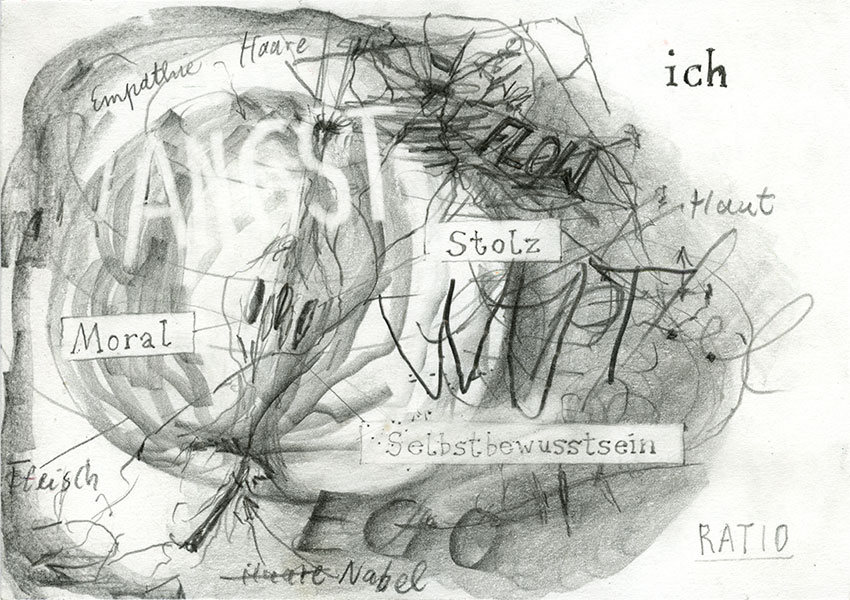 ich
Empathie
Haare
ANGST
FLOW
Haut
Stolz
WUT
Moral
Selbstbewusstsein
Fleisch
EGO
RATIO
Haare Nabel